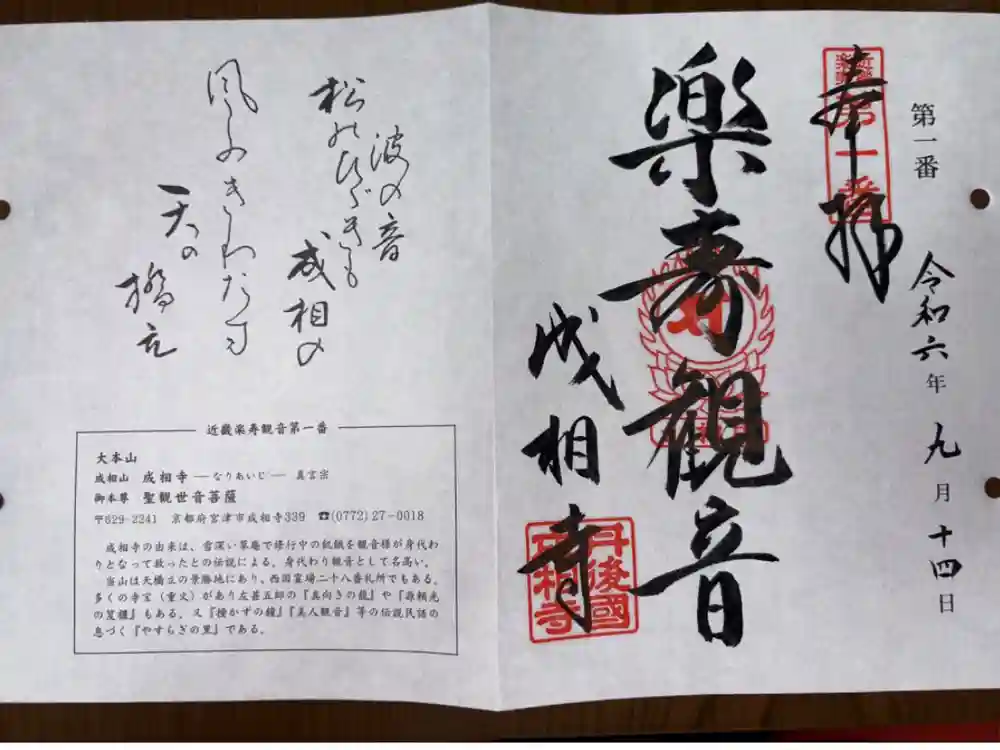 第一番
奉拝
令和六年九月十四日
楽寿観音
成相寺
丹後國
成相寺
波の音
松のひびきも
成相の
風ふきわたす
天の
橋立
近畿楽寿観音第一番
大本山
成相山 成相寺 ―なりあいじ― 真言宗
御本尊 聖観世音菩薩
〒629-2241 京都府宮津市成相寺339 ☎(0772)27-0018
成相寺の由来は、雪深い草庵で修行中の飢餓を観音様が身代わ
りとなって救ったとの伝説による。身代わり観音として名高い。
当山は天橋立の景勝地にあり、西国霊場二十八番札所でもある。
多くの寺宝（重文）があり左甚五郎の『真向きの龍』や『源頼光
の笈櫃』もある。又『撞かずの鐘』『美人観音』等の伝説民話の
息づく『やすらぎの里』である。